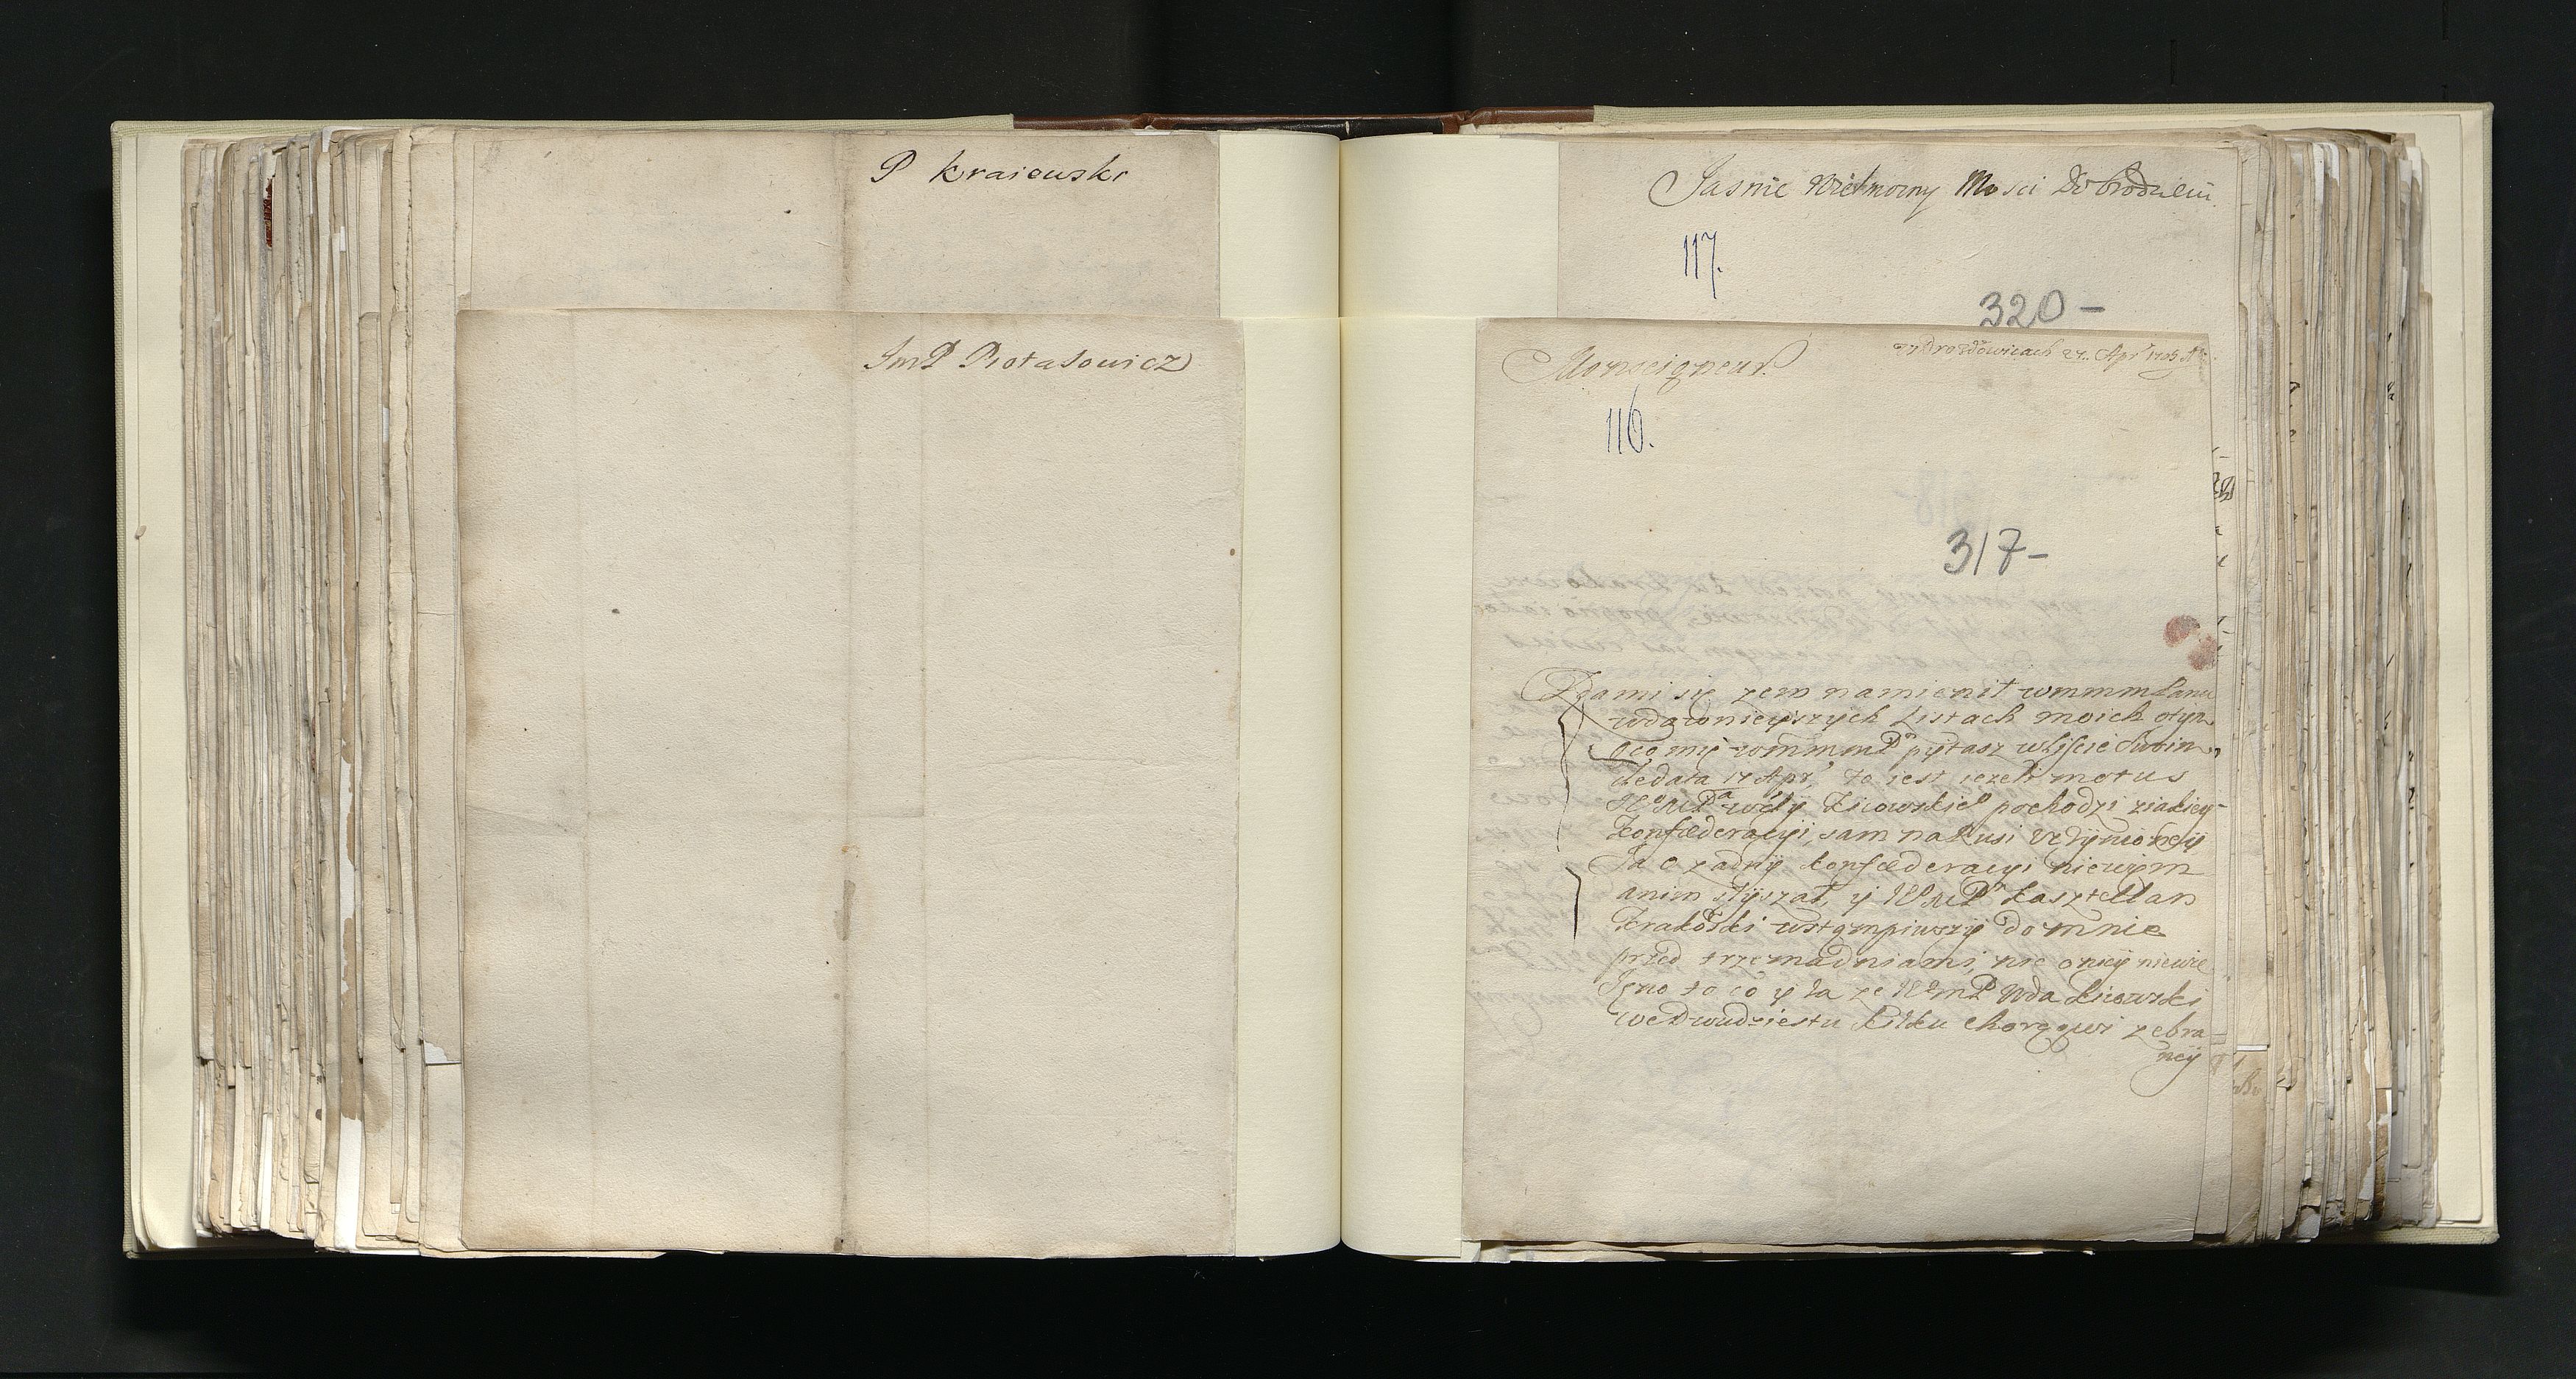 P Kraiewski
JmP Protasowicz
Jasnie Wielmozny Mosci Dobrodzieiu
117.
320 –
Monseigneur.
w Drozdowicach 27. Apr 1703
116.
317 –
Zda mi się zem namienił wmmm Panu
wdawnieyszych Listach moich otym
oco mię wmmmPn pytasz wliscie Lubin,
de data 17 Apr, to iest iezeli motus
Kiiowskieo pochodzi ziakiey
Konfæderacyi, sam na Rusi
Ja o zadny konfæderacyi niewim
anim słyszał, y Kasztellan
Krakoski wstąmpiwszy do mnie
przed trzema dniami, nic oniey niewie
Jeno to co y Ja ze Wda Kiiowski
we Dwudziestu kilku chorągwi zebra-
ney